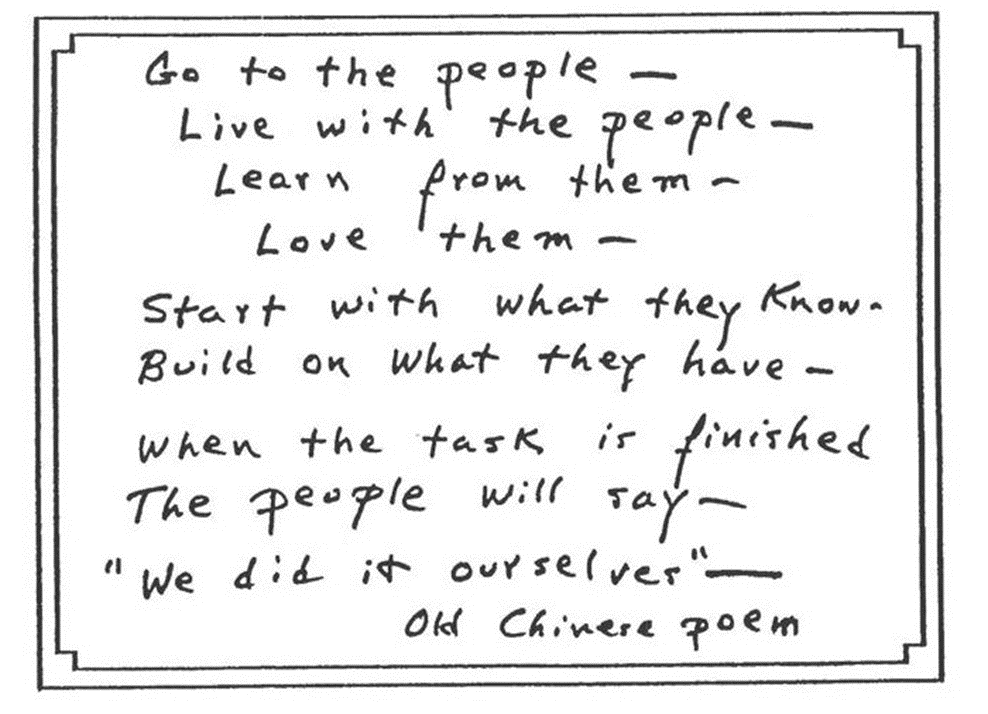 Go to the people —
Live with the people —
Learn from them —
Love them —
Start with what they know -
Build on what they have —
When the task is finished
The people will say —
"We did it ourselves" —
Old Chinese poem